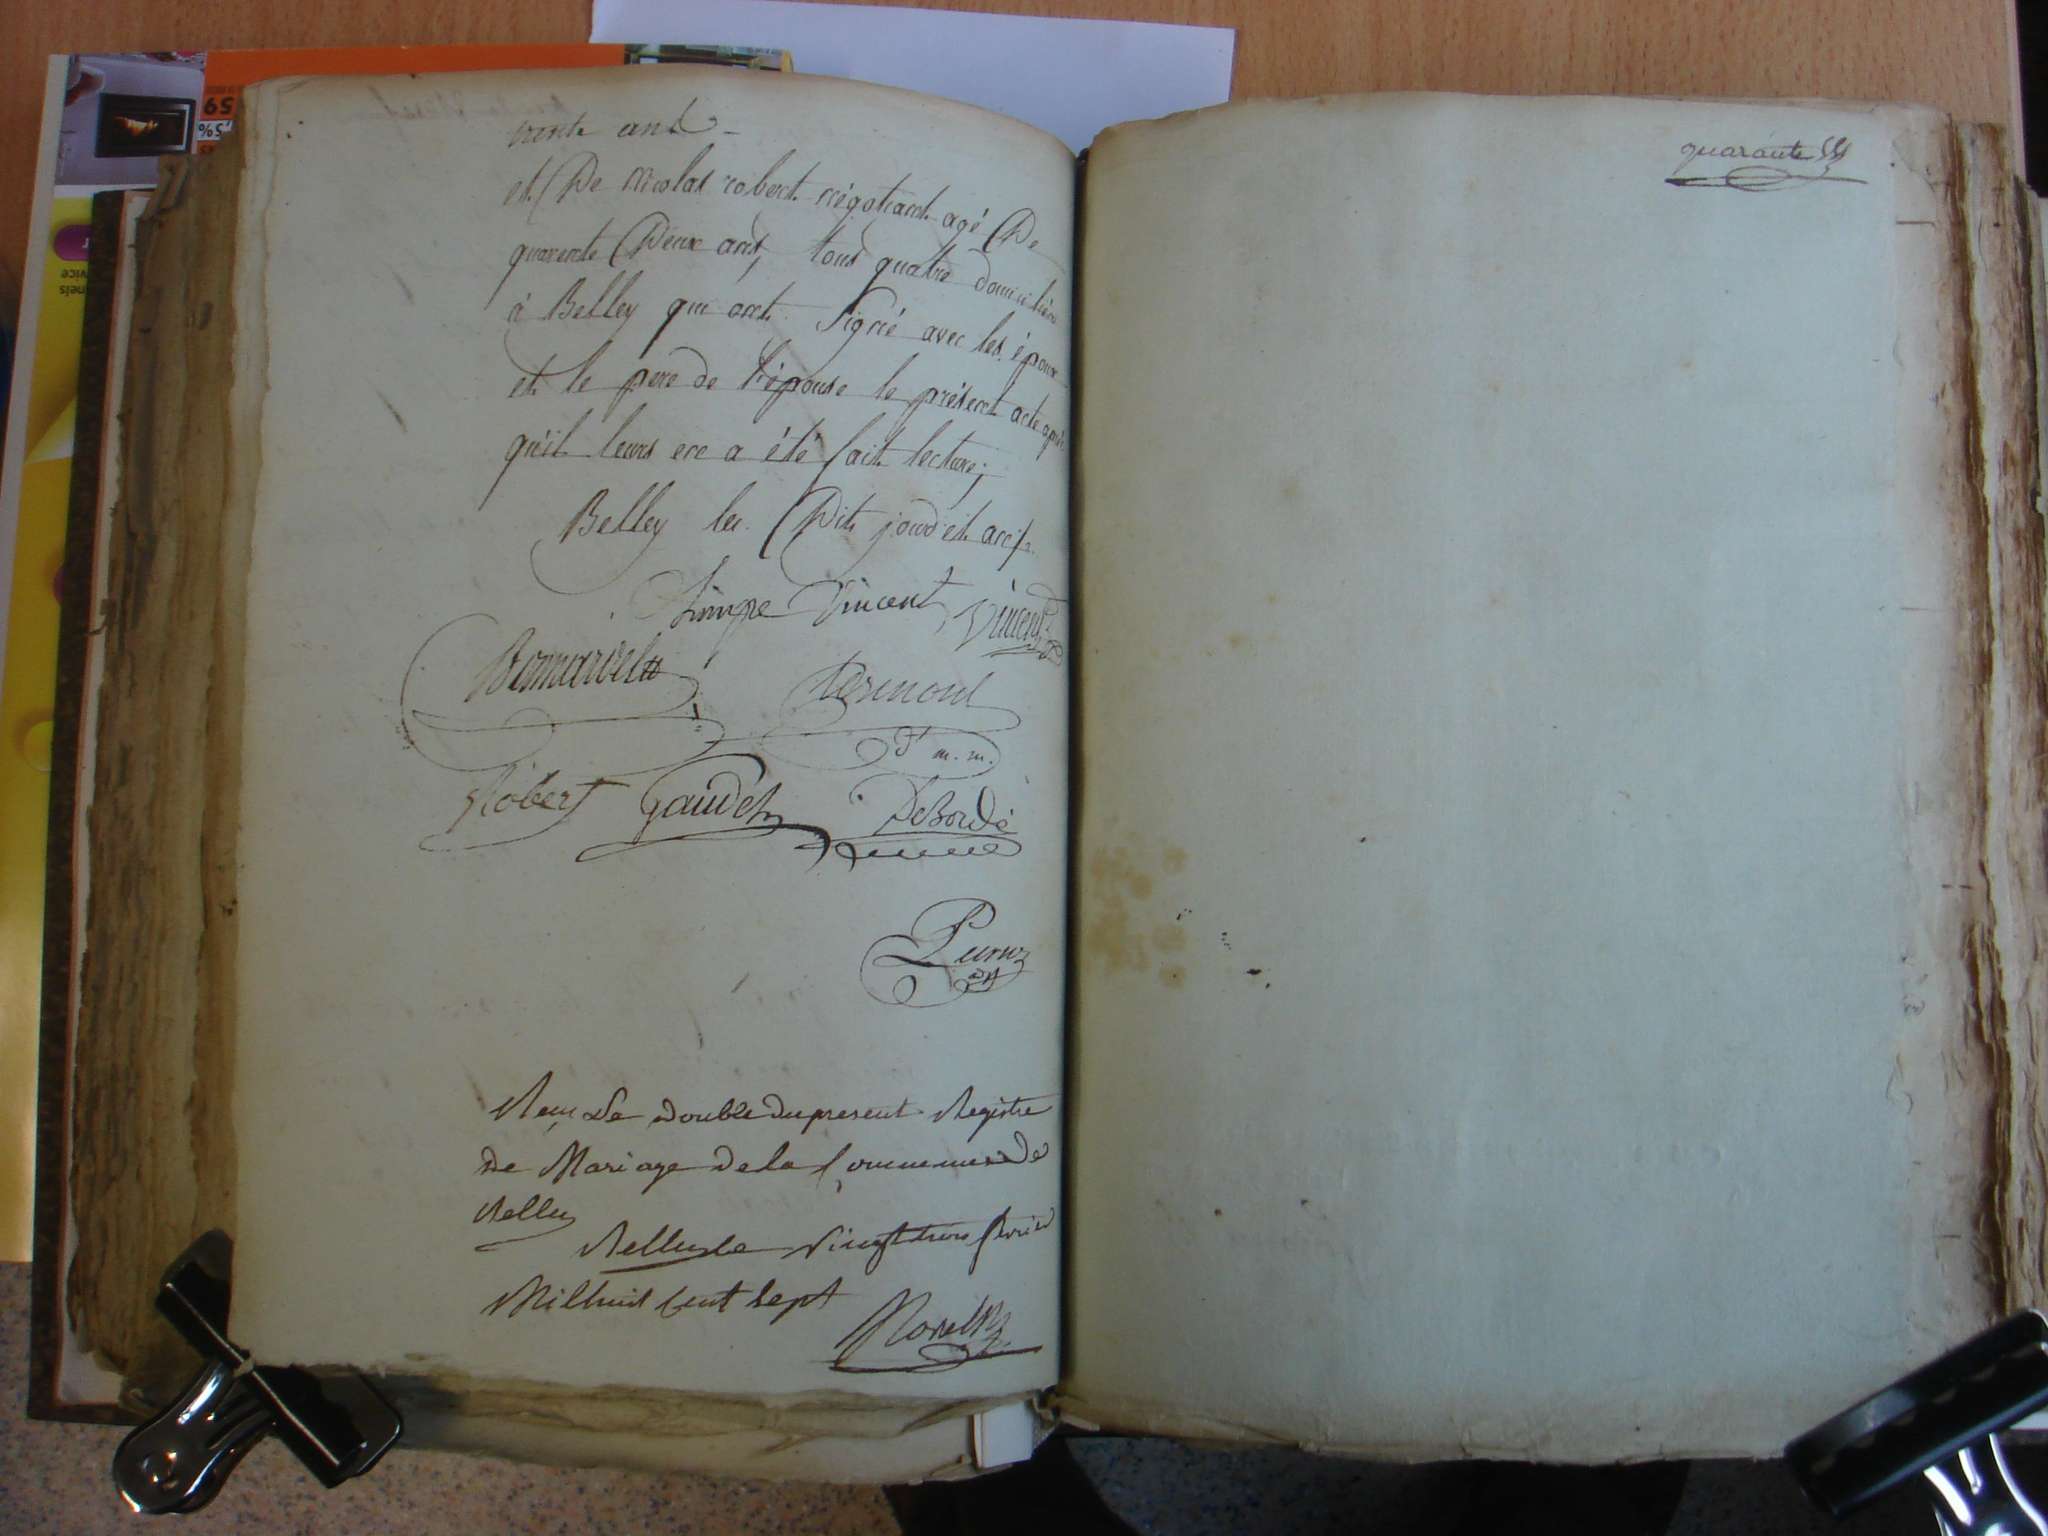 trente ans
et De Nicolas robert négotiant agé De
quarente Deux ans, tous quatre domiciliés
à Belley qui ont Signé avec les époux
et le pere de l'épouse le présent acte après
qu'il leurs en a été fait lecture;
Belley les Dits jours et an
Vincent, Vincent
Robert Gaudet DeBordé
Reçu Le double du present Registre
de Mariage de la Commune de
Belley
Belley le Vingt trois fevrier
Mil huit Cent Sept
quarante
59